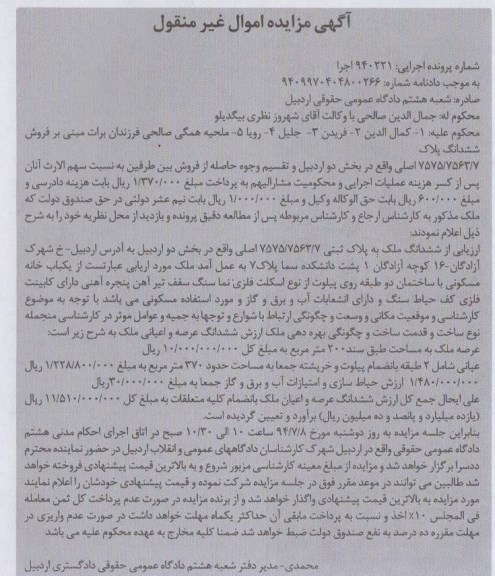 آگهی مزایده اموال غیر منقول
شماره پرونده اجرایی: ۹۴۰۲۲۱ اجرا
به موجب دادنامه شماره: ۹۴۰۹۹۷۰۴۰۴۸۰۰۲۶۶
صادره: شعبه هشتم دادگاه عمومی حقوقی اردبیل
محکوم له: جمال الدین صالحی با وکالت آقای شهروز نظری بیگدیلو
محکوم علیه: ۱- کمال الدین ۲- فریدن ۳- جلیل ۴- رویا ۵- ملحیه همگی صالحی فرزندان برات مبنی بر فروش
ششدانگ پلاک
۷۵۷۵/۷۵۶۳/۷ اصلی واقع در بخش دو اردبیل و تقسیم وجوه حاصله از فروش بین طرفین به نسبت سهم الارث آنان
پس از کسر هزینه عملیات اجرایی و محکومیت مشارالیهم به پرداخت مبلغ ۱/۳۷۰/۰۰۰ ریال بابت هزینه دادرسی و
مبلغ ۶۰۰/۰۰۰ ریال بابت حق الوکاله وکیل و مبلغ ۱/۰۰۰/۰۰۰ ریال بابت نیم عشر دولتی در حق صندوق دولت که
ملک مذکور به کارشناس ارجاع و کارشناس مربوطه پس از مطالعه دقیق پرونده و بازدید از محل نظریه خود را به شرح
ذیل اعلام نمودند:
ارزیابی از ششدانگ ملک به پلاک ثبتی ۷۵۷۵/۷۵۶۳/۷ اصلی واقع در بخش دو اردبیل به آدرس اردبیل- خ شهرک
آزادگان-۱۶ کوچه آزادگان ۱ پشت دانشکده سما پلاک۷ به عمل آمد ملک مورد اریابی عبارتست از یکباب خانه
مسکونی با ساختمان دو طبقه روی پیلوت از نوع اسکلت فلزی نما سنگ سقف تیر آهن پنجره آهنی دارای کابینت
فلزی کف حیاط سنگ و دارای انشعابات آب و برق و گاز و مورد استفاده مسکونی می باشد با توجه به موضوع
کارشناسی و موقعیت مکانی و وسعت و چگونگی ارتباط با شوارع و توجها به جمیه و عوامل موثر در کارشناسی منجمله
نوع ساخت و قدمت ساخت و چگونگی بهره دهی ملک ارزش ششدانگ عرصه و اعیانی ملک به شرح زیر است:
عرصه ملک به مساحت طبق سند۲۰۰ متر مربع به مبلغ کل ۱۰/۰۰۰/۰۰۰/۰۰۰ ریال
عیانی شامل ۲ طبقه بانضمام پیلوت و خرپشته جمعا به مساحت حدود ۳۷۰ متر مربع به مبلغ ۱/۲۳۸/۸۰۰/۰۰۰ ریال
۱/۴۸۰/۰۰۰/۰۰۰ ارزش حیاط سازی و امتیازات آب و برق و گاز جمعا به مبلغ ۳۰/۰۰۰/۰۰۰ریال
علی ایحال جمع کل ارزش ششدانگ عرصه و اعیان ملک بانضمام کلیه متعلقات به مبلغ کل ۱۱/۵۱۰/۰۰۰/۰۰۰ ریال
(یازده میلیارد و پانصد و ده میلیون ریال) برآورد و تعیین گردیده است.
بنابراین جلسه مزایده به روز دوشنبه مورخ ۹۴/۷/۸ ساعت ۱۰ الی ۱۰/۳۰ صبح در اتاق اجرای احکام مدنی هشتم
دادگاه عمومی حقوقی واقع در اردبیل شهرک کارشناسان دادگاههای عمومی و انقلاب اردبیل در حضور نماینده محترم
ددسرا برگزار خواهد شد و مزایده از مبلغ معینه کارشناسی مزبور شروع و به بالاترین قیمت پیشنهادی فروخته خواهد
شد طالبین می توانند در موعد مقرر فوق در جلسه مزایده شرکت نموده و قیمت پیشنهادی خودشان را اعلام نمایند
مورد مزایده به بالاترین قیمت پیشنهادی واگذار خواهد شد و از برنده مزایده در صورت عدم پرداخت کل ثمن معامله
فی المجلس ۱۰٪ اخذ و نسبت به پرداخت مابقی آن حداکثر یکماه مهلت خواهد داشت در صورت عدم واریزی در
مهلت مقرره ده درصد به نفع صندوق دولت ضبط خواهد شد ضمنا کلیه مخارج به عهده محکوم علیه می باشد
محمدی- مدیر دفتر شعبه هشتم دادگاه عمومی حقوقی دادگستری اردبیل